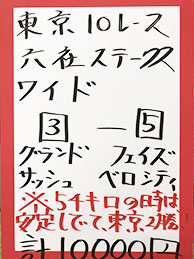 東京10レース
六社ステークス
ワイド
3 — 5
グランド フェイズ
サッシュ ベロシティ
※54キロの時は
安定してて、東京2勝
計10000円